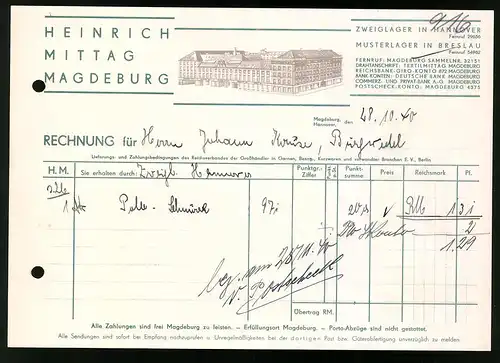 HEINRICH
MITTAG
MAGDEBURG
ZWEIGLAGER IN HANNOVER
Fernruf 29686
MUSTERLAGER IN BRESLAU
Fernruf 54980
FERNRUF: MAGDEBURG SAMMELNR. 32151
DRAHTANSCHRIFT: TEXTILMITTAG MAGDEBURG
REICHSBANK-GIRO-KONTO 872 MAGDEBURG
BANK-KONTEN: DEUTSCHE BANK MAGDEBURG
COMMERZ- UND PRIVAT-BANK A.-G. MAGDEBURG
POSTSCHECK-KONTO: MAGDEBURG 6375
Magdeburg,
Hannover, den 28.10.40
RECHNUNG für Herrn Johann
Lieferungs- und Zahlungsbedingungen des Reichsverbandes der Großhändler in Garnen, Besatz-, Kurzwaren und verwandter Branchen E. V., Berlin
H. M. Sie erhalten durch: Zweigl. Hannover Punktgr.-Ziffer Punkt-summe Preis Reichsmark Pf.
1 97
1 31
2
1.29
Postscheck
Übertrag RM.
Alle Zahlungen sind frei Magdeburg zu leisten. – Erfüllungsort Magdeburg. – Porto-Abzüge sind nicht gestattet.
Alle Sendungen sind sofort bei Empfang nachzuprüfen u. Unregelmäßigkeiten bei der dortigen Post bzw. Güterabfertigung unverzüglich zu melden.